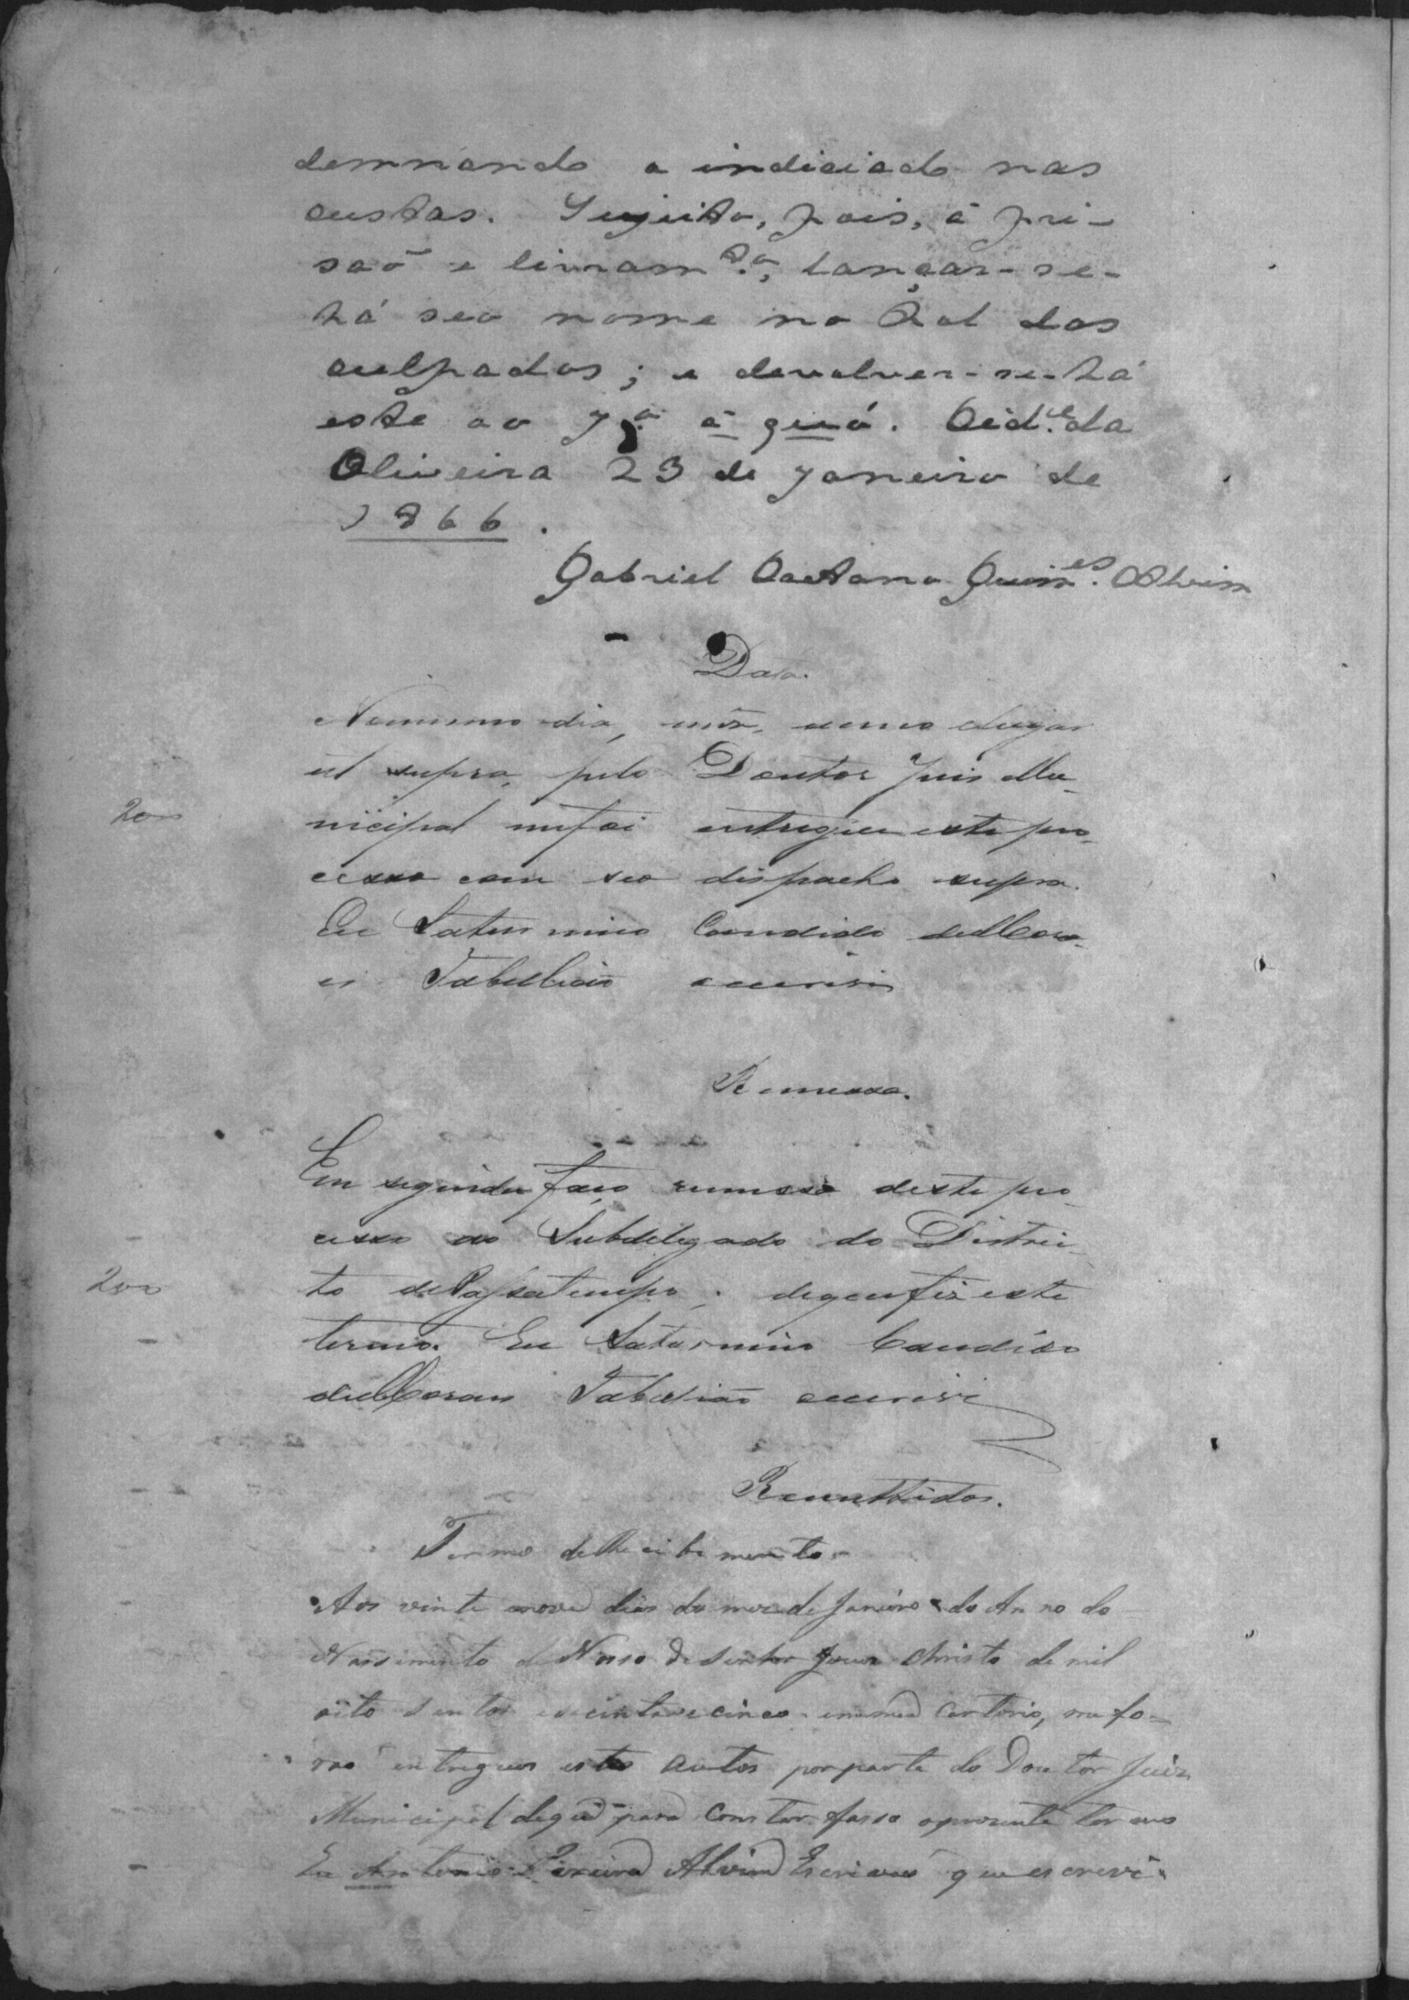 demnando o indiciado nas
custas. Sugeito, pois, á pri-
saõ e livram.to, lançar-se-
há seo nome no Rol dos
culpados; e devolver-se-há
este ao J.o á quó. Cid.e da
Oliveira 23 de Janeiro de
1866.
Gabriel Caetano Guim.es Alvim
Data.
No mesmo dia, mês, anno e lugar
ut supra, pelo Doutor Juis Mu-
200
nicipal me foi entregue este pro-
cesso com seo dispacho supra.
Eu Saturnino Candido de Mora-
es Tabelliaõ escrevi
Remessa.
Em seguida faço remessa deste pro
cesso ao Subdelegado do Distric-
200
to de Passatempo; de que fiz este
termo. Eu Saturnino Candido
de Moraes Tabeliaõ escrevi
Remettidos.
Termo de Recibimento.
Aos vinte nove dias do mes de Janeiro do Anno do
Nassimento de Nosso Senhor Jesus Christo de mil
oito sentos e secenta e cinco em meu Cartorio, me fo-
raõ entregues estes autos por parte do Doutor Juiz
Municipal de que para constar fasso o prezente termo
Eu Antonio Teixeira Alvim Escrivaõ que escrevi.